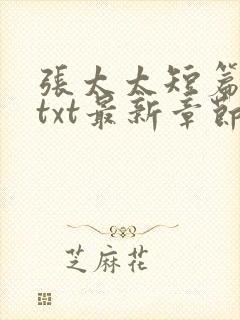 張太太短篇
txt最新章節
芝麻花